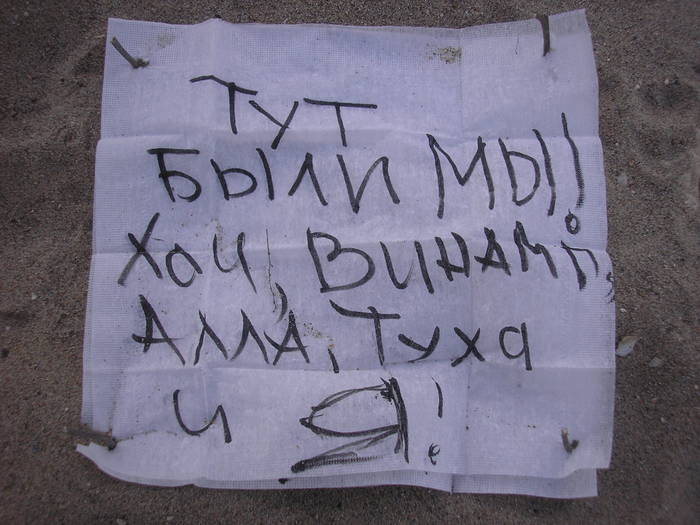 ТУТ
БЫЛИ МЫ!
Хои, ВИНАМП,
АЛЛА, Туха
и Я!